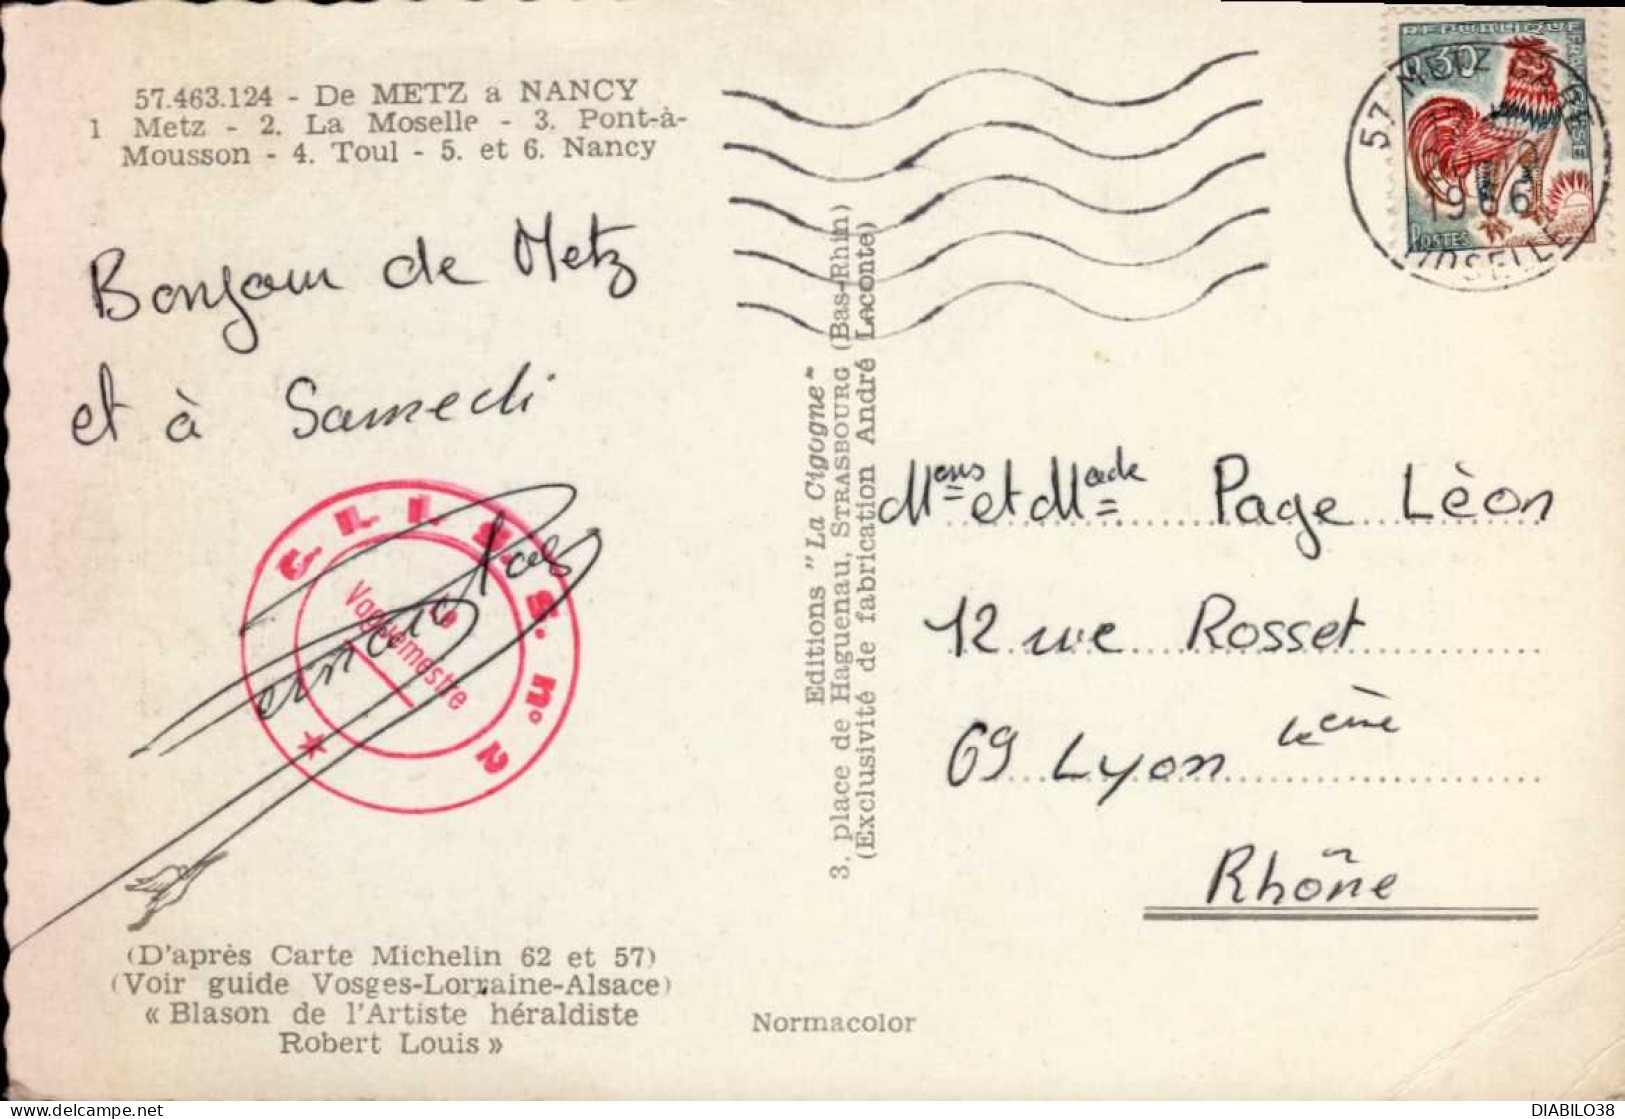 57.463.124 - De METZ a NANCY
1 Metz - 2. La Moselle - 3. Pont-à-
Mousson - 4. Toul - 5. et 6. Nancy
Bonjour de Metz
et à Samedi
C. I. S. S. n° 2
Le
Vaguemestre
(D'après Carte Michelin 62 et 57)
(Voir guide Vosges-Lorraine-Alsace)
« Blason de l'Artiste héraldiste
Robert Louis »
Editions "La Cigogne"
3, place de Haguenau, STRASBOURG (Bas-Rhin)
(Exclusivité de fabrication André Leconte)
Normacolor
REPUBLIQUE FRANCAISE
0,30
POSTES
57 METZ
1966
MOSELLE
Mons et Made Page Lèon
12 rue Rosset
69 Lyon 4eme
Rhône
DIABILO38